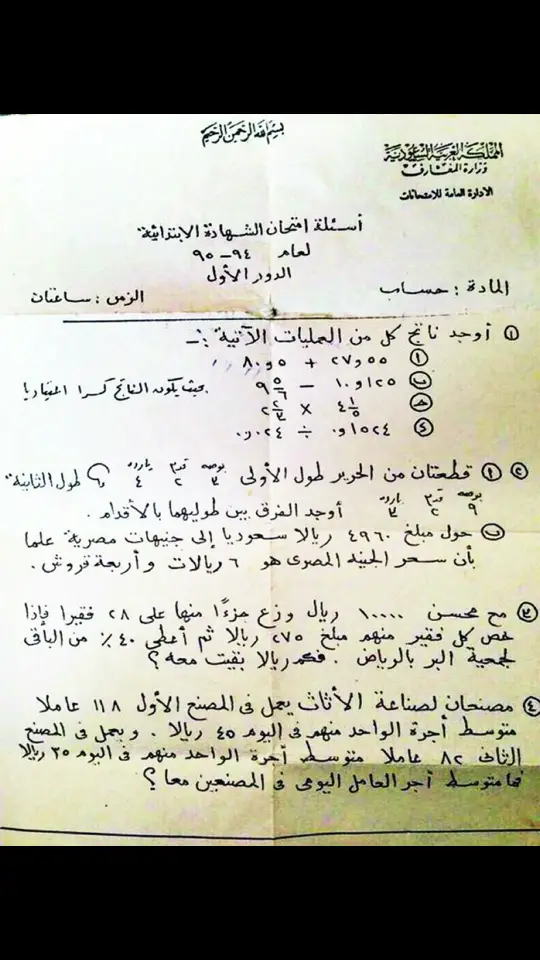 بسم الله الرحمن الرحيم
المملكة العربية السعودية
وزارة المعارف
الإدارة العامة للامتحانات
أسئلة امتحان الشهادة الابتدائية
لعام ٩٤ - ٩٥
الدور الأول
المادة : حساب
الزمن : ساعتان
١ أوجد ناتج كل من العمليات الآتية :-
أ ٥٥و٢٧ + ٥و٨٠
ب ١٢٥و١٠ - ٩ ٥/٦ بحيث يكون الناتج كسرا اعتياديا
ج ٤ ١/٥ × ٢ ٢/٣
د ١٥٢٤و٠ ÷ ٠٢٤و٠
٢ أ قطعتان من الحرير طول الأولى ٣ بوصه ٢ قدم ٤ يارده و طول الثانية
٩ بوصه ٢ قدم ٣ يارده أوجد الفرق بين طوليهما بالأقدام .
ب حول مبلغ ٤٩٦٠ ريالا سعوديا إلى جنيهات مصرية علما
بأن سعر الجنيه المصرى هو ٦ ريالات وأربعة قروش .
٣ مع محسن ١٠٠٠٠ ريال وزع جزءًا منها على ٢٨ فقيرا فإذا
خص كل فقير منهم مبلغ ٢٧٥ ريالا ثم أعطى ٤٠٪ من الباقى
لجمعية البر بالرياض . فكم ريالا بقيت معه ؟
٤ مصنعان لصناعة الأثاث يعمل فى المصنع الأول ١١٨ عاملا
متوسط أجرة الواحد منهم فى اليوم ٤٥ ريالا . ويعمل فى المصنع
الثانى ٨٢ عاملا متوسط أجرة الواحد منهم فى اليوم ٣٥ ريالا
فما متوسط أجر العامل اليومى فى المصنعين معا ؟